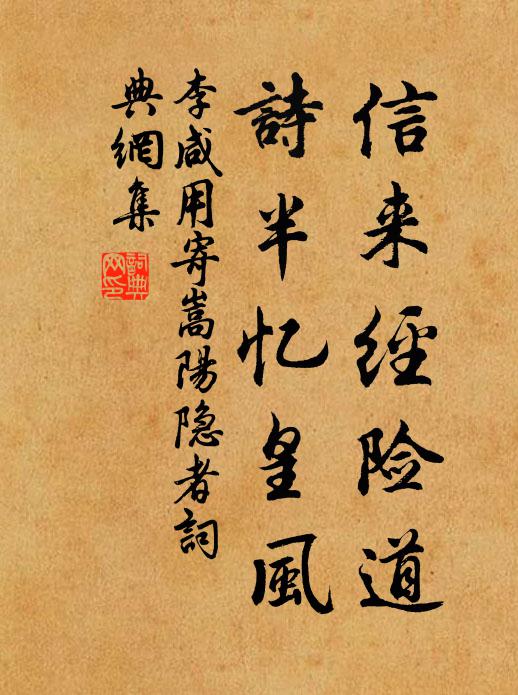 信来經险道
詩半忆皇風
李咸用寄嵩陽隐者詞
典網集
詞典
网印